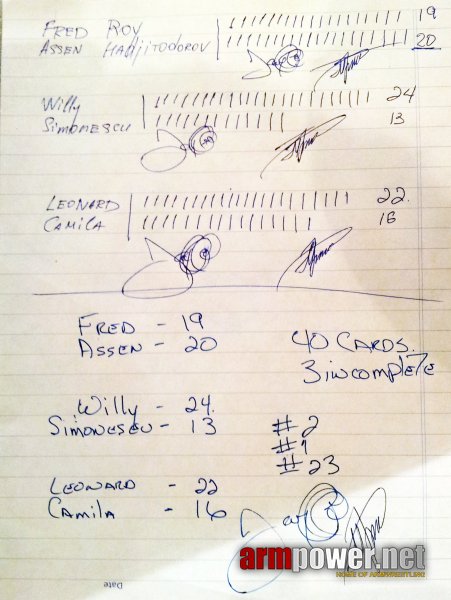 FRED ROY 19
ASSEN HADJITODOROV 20
Willy 24
SIMONESCU 13
LEONARD 22.
CAMILA 16
FRED - 19
ASSEN - 20
40 CARDS.
3 incomplete
Willy - 24.
Simonescu - 13
#2
#1
#23
LEONARD - 22
CAMILA - 16
armpower.net
HOME OF ARMWRESTLING
Date